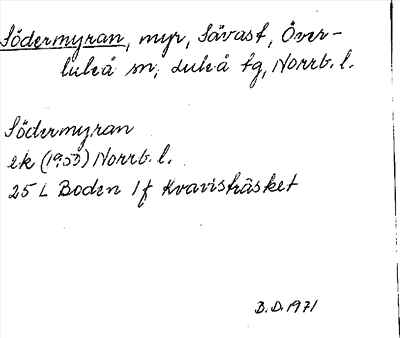 Södermyran, myr, Sävast, Över-
luleå sn, Luleå tg, Norrb. l.
Södermyran
ek (1953) Norrb. l.
25 L Boden 1f Kvavisträsket
B.D. 1971